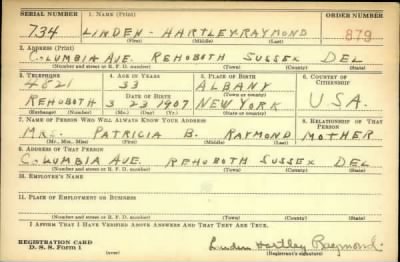 SERIAL NUMBER 1. NAME (Print) ORDER NUMBER
734 LINDEN - HARTLEY-RAYMOND 879
(First) (Middle) (Last)
2. ADDRESS (Print)
COLUMBIA AVE. REHOBOTH SUSSEX DEL
(Number and street or R. F. D. number) (Town) (County) (State)
3. TELEPHONE 4. AGE IN YEARS 5. PLACE OF BIRTH 6. COUNTRY OF CITIZENSHIP
4821 33 ALBANY
(Town or county)
DATE OF BIRTH
REHOBOTH 3 23 1907 NEW YORK U.S.A.
(Exchange) (Number) (Mo.) (Day) (Yr.) (State or country)
7. NAME OF PERSON WHO WILL ALWAYS KNOW YOUR ADDRESS 8. RELATIONSHIP OF THAT PERSON
MRS. PATRICIA B. RAYMOND MOTHER
(Mr., Mrs., Miss) (First) (Middle) (Last)
9. ADDRESS OF THAT PERSON
COLUMBIA AVE. REHOBOTH SUSSEX DEL
(Number and street or R. F. D. number) (Town) (County) (State)
10. EMPLOYER'S NAME
11. PLACE OF EMPLOYMENT OR BUSINESS
(Number and street or R. F. D. number) (Town) (County) (State)
I AFFIRM THAT I HAVE VERIFIED ABOVE ANSWERS AND THAT THEY ARE TRUE.
REGISTRATION CARD
D. S. S. Form 1 (over) Linden Hartley Raymond.
(Registrant's signature)